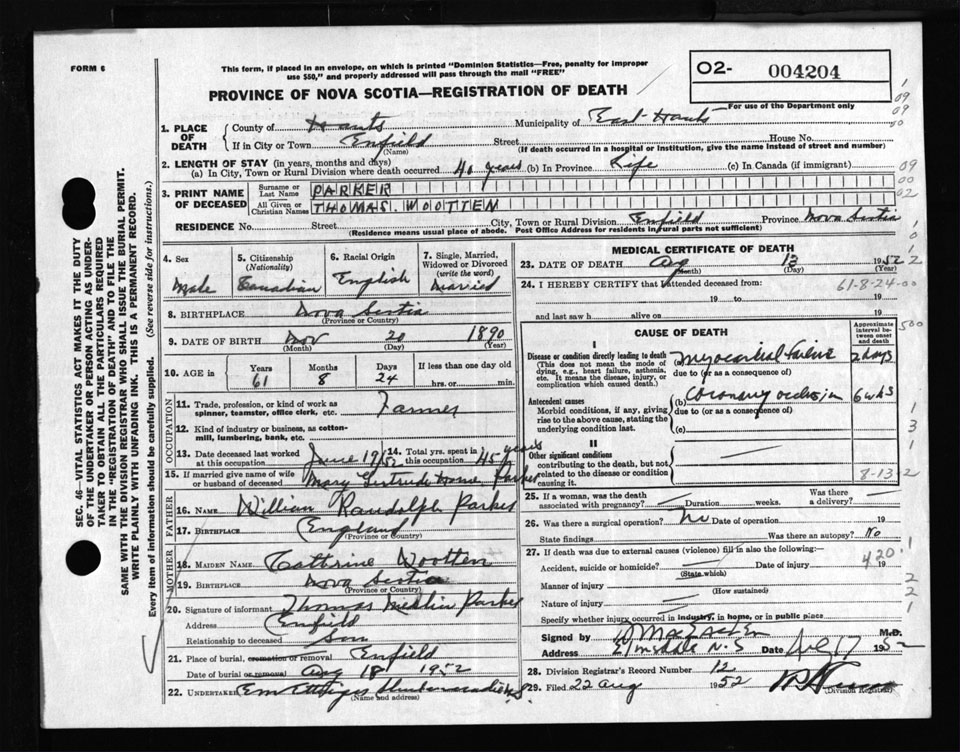 FORM 6
This form, if placed in an envelope, on which is printed "Dominion Statistics—Free, penalty for improper
use $50," and properly addressed will pass through the mail "FREE"
O2- 004204
For use of the Department only
PROVINCE OF NOVA SCOTIA—REGISTRATION OF DEATH
1. PLACE OF DEATH
County of Hants Municipality of East Hants
If in City or Town Enfield Street House No.
(Name) (If death occurred in a hospital or institution, give the name instead of street and number)
2. LENGTH OF STAY (in years, months and days)
(a) In City, Town or Rural Division where death occurred 40 years (b) In Province Life (c) In Canada (if immigrant)
3. PRINT NAME OF DECEASED
Surname or Last Name PARKER
All Given or Christian Names THOMAS WOOTTEN
RESIDENCE No. Street City, Town or Rural Division Enfield Province Nova Scotia
(Residence means usual place of abode. Post Office Address for residents in rural parts not sufficient)
4. Sex Male
5. Citizenship (Nationality) Canadian
6. Racial Origin English
7. Single, Married, Widowed or Divorced (write the word) Married
8. BIRTHPLACE Nova Scotia
(Province or Country)
9. DATE OF BIRTH Nov 20 1890
(Month) (Day) (Year)
10. AGE in Years 61 Months 8 Days 24 If less than one day old hrs. or min.
OCCUPATION
11. Trade, profession, or kind of work as spinner, teamster, office clerk, etc. Farmer
12. Kind of industry or business, as cotton-mill, lumbering, bank, etc.
13. Date deceased last worked at this occupation June 1952
14. Total yrs. spent in this occupation 45 years
15. If married give name of wife or husband of deceased Mary Gertrude Horne Parker
FATHER
16. NAME William Randolph Parker
17. BIRTHPLACE England
(Province or Country)
MOTHER
18. MAIDEN NAME Cathrine Wootten
19. BIRTHPLACE Nova Scotia
(Province or Country)
20. Signature of informant Thomas Parker
Address Enfield
Relationship to deceased Son
21. Place of burial, cremation or removal Enfield
Date of burial or removal Aug 18 1952
22. UNDERTAKER
(Name and address)
MEDICAL CERTIFICATE OF DEATH
23. DATE OF DEATH Aug 13 1952
(Month) (Day) (Year)
24. I HEREBY CERTIFY that I attended deceased from 61-8-24-00
19 to 19
and last saw h alive on 19
CAUSE OF DEATH
Approximate interval between onset and death
I
Disease or condition directly leading to death (a) myocardial failure 2 days
(This does not mean the mode of dying, e.g., heart failure, asthenia, etc. It means the disease, injury, or complication which caused death.)
due to (or as a consequence of)
Antecedent causes (b) Coronary occlusion 6 wks
Morbid conditions, if any, giving rise to the above cause, stating the underlying condition last.
due to (or as a consequence of)
(c)
II
Other significant conditions contributing to the death, but not related to the disease or condition causing it.
8-13-2
25. If a woman, was the death associated with pregnancy? Duration weeks. Was there a delivery?
26. Was there a surgical operation? No Date of operation 19
State findings Was there an autopsy? No
27. If death was due to external causes (violence) fill in also the following:—
Accident, suicide or homicide? Date of injury 19
(State which)
420.1
Manner of injury
(How sustained)
Nature of injury
Specify whether injury occurred in industry, in home, or in public place
Signed by M.D.
Address Elmsdale N.S Date 17 1952
28. Division Registrar's Record Number 12
29. Filed 22 Aug 1952
(Division Registrar)
SEC. 46—VITAL STATISTICS ACT MAKES IT THE DUTY
OF THE UNDERTAKER OR PERSON ACTING AS UNDER-
TAKER TO OBTAIN ALL THE PARTICULARS REQUIRED
IN THE "REGISTRATION OF DEATH" AND TO FILE THE
SAME WITH THE DIVISION REGISTRAR WHO SHALL ISSUE THE BURIAL PERMIT.
WRITE PLAINLY WITH UNFADING INK. THIS IS A PERMANENT RECORD.
Every item of information should be carefully supplied. (See reverse side for instructions.)